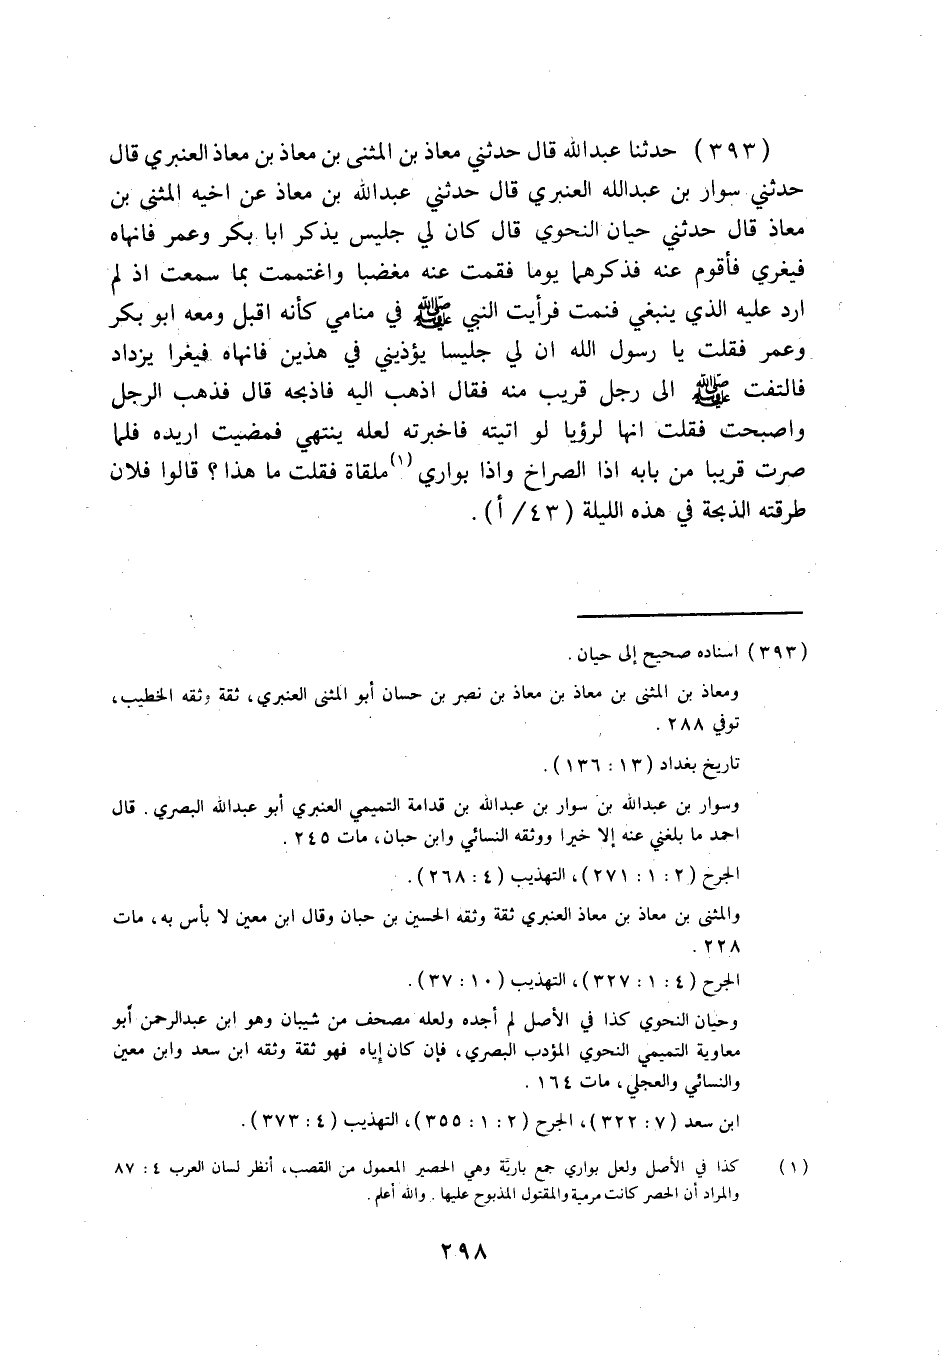 (٣٩٣) حدثنا عبدالله قال حدثني معاذ بن المثنى بن معاذ بن معاذ العنبري قال
حدثني سوار بن عبدالله العنبري قال حدثني عبدالله بن معاذ عن اخيه المثنى بن
معاذ قال حدثني حيان النحوي قال كان لي جليس يذكر ابا بكر وعمر فانهاه
فيغري فأقوم عنه فذكرهما يوما فقمت عنه مغضبا واغتممت بما سمعت اذ لم
ارد عليه الذي ينبغي فنمت فرأيت النبي ﷺ في منامي كأنه اقبل ومعه ابو بكر
وعمر فقلت يا رسول الله ان لي جليسا يؤذيني في هذين فانهاه فيغرا يزداد
فالتفت ﷺ الى رجل قريب منه فقال اذهب اليه فاذبحه قال فذهب الرجل
واصبحت فقلت انها لرؤيا لو اتيته فاخبرته لعله ينتهي فمضيت اريده فلما
صرت قريبا من بابه اذا الصراخ واذا بواري (١) ملقاة فقلت ما هذا؟ قالوا فلان
طرقته الذبحة في هذه الليلة (٤٣/ أ).
(٣٩٣) اسناده صحيح إلى حيان.
ومعاذ بن المثنى بن معاذ بن معاذ بن نصر بن حسان أبو المثنى العنبري، ثقة وثقه الخطيب،
توفي ٢٨٨.
تاريخ بغداد (١٣: ١٣٦).
وسوار بن عبدالله بن سوار بن عبدالله بن قدامة التميمي العنبري أبو عبدالله البصري. قال
احمد ما بلغني عنه إلا خيرا ووثقه النسائي وابن حبان، مات ٢٤٥.
الجرح (٢: ١: ٢٧١)، التهذيب (٤: ٢٦٨).
والمثنى بن معاذ بن معاذ العنبري ثقة وثقه الحسين بن حبان وقال ابن معين لا بأس به، مات
٢٢٨.
الجرح (٤: ١: ٣٢٧)، التهذيب (١٠: ٣٧).
وحيان النحوي كذا في الأصل لم أجده ولعله مصحف من شيبان وهو ابن عبدالرحمن أبو
معاوية التميمي النحوي المؤدب البصري، فإن كان إياه فهو ثقة وثقه ابن سعد وابن معين
والنسائي والعجلي، مات ١٦٤.
ابن سعد (٧: ٣٢٢)، الجرح (٢: ١: ٣٥٥)، التهذيب (٤: ٣٧٣).
(١) كذا في الأصل ولعل بواري جمع باريَّة وهي الحصير المعمول من القصب، أنظر لسان العرب ٤: ٨٧
والمراد أن الحصر كانت مرمية والمقتول المذبوح عليها. والله أعلم.
٢٩٨